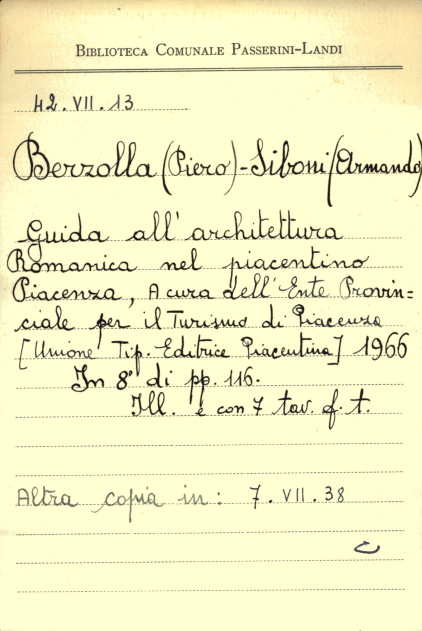 BIBLIOTECA COMUNALE PASSERINI-LANDI
42. VII. 13
Berzolla (Piero) - Siboni (Armando)
Guida all' architettura
Romanica nel piacentino
Piacenza, A cura dell'Ente Provin=
ciale per il Turismo di Piacenza
[Unione Tip. Editrice Piacentina] 1966
In 8° di pp. 116.
Ill. e con 7 tav. f. t.
Altra copia in: 7. VII. 38